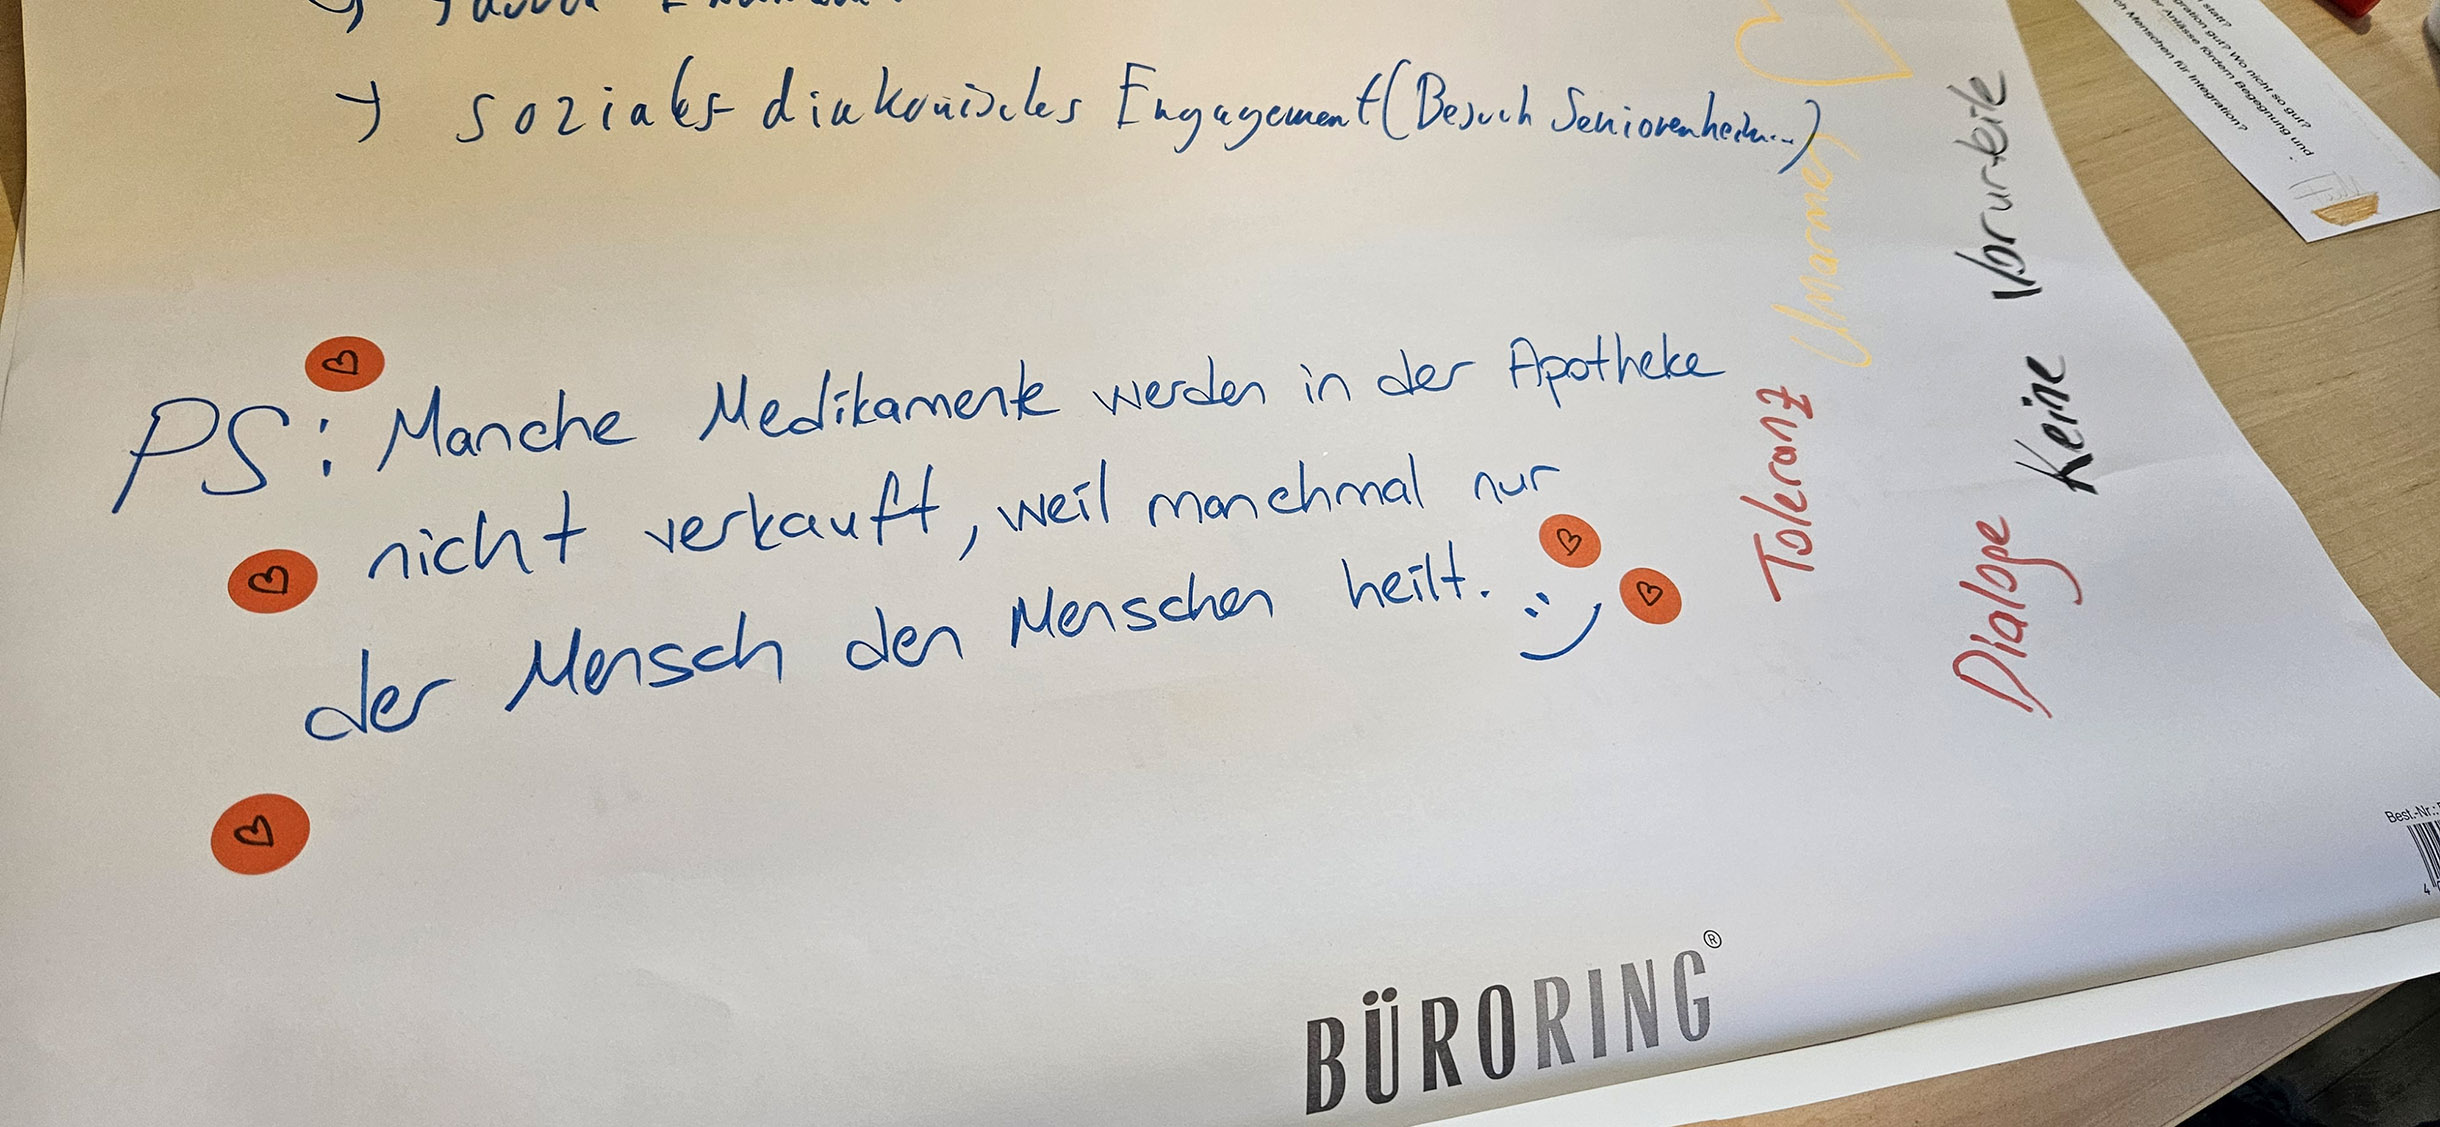 → soziales diakonisches Engagement (Besuch Seniorenheim...)
PS: Manche Medikamente werden in der Apotheke
nicht verkauft, weil manchmal nur
der Mensch den Menschen heilt. :)
Umarmen
Toleranz
Keine Vorurteile
Dialoge
statt?
gut? Wo nicht so gut?
Anlässe fördern Begegnung und
Menschen für Integration?
Best.-Nr.:
4
BÜRORING®